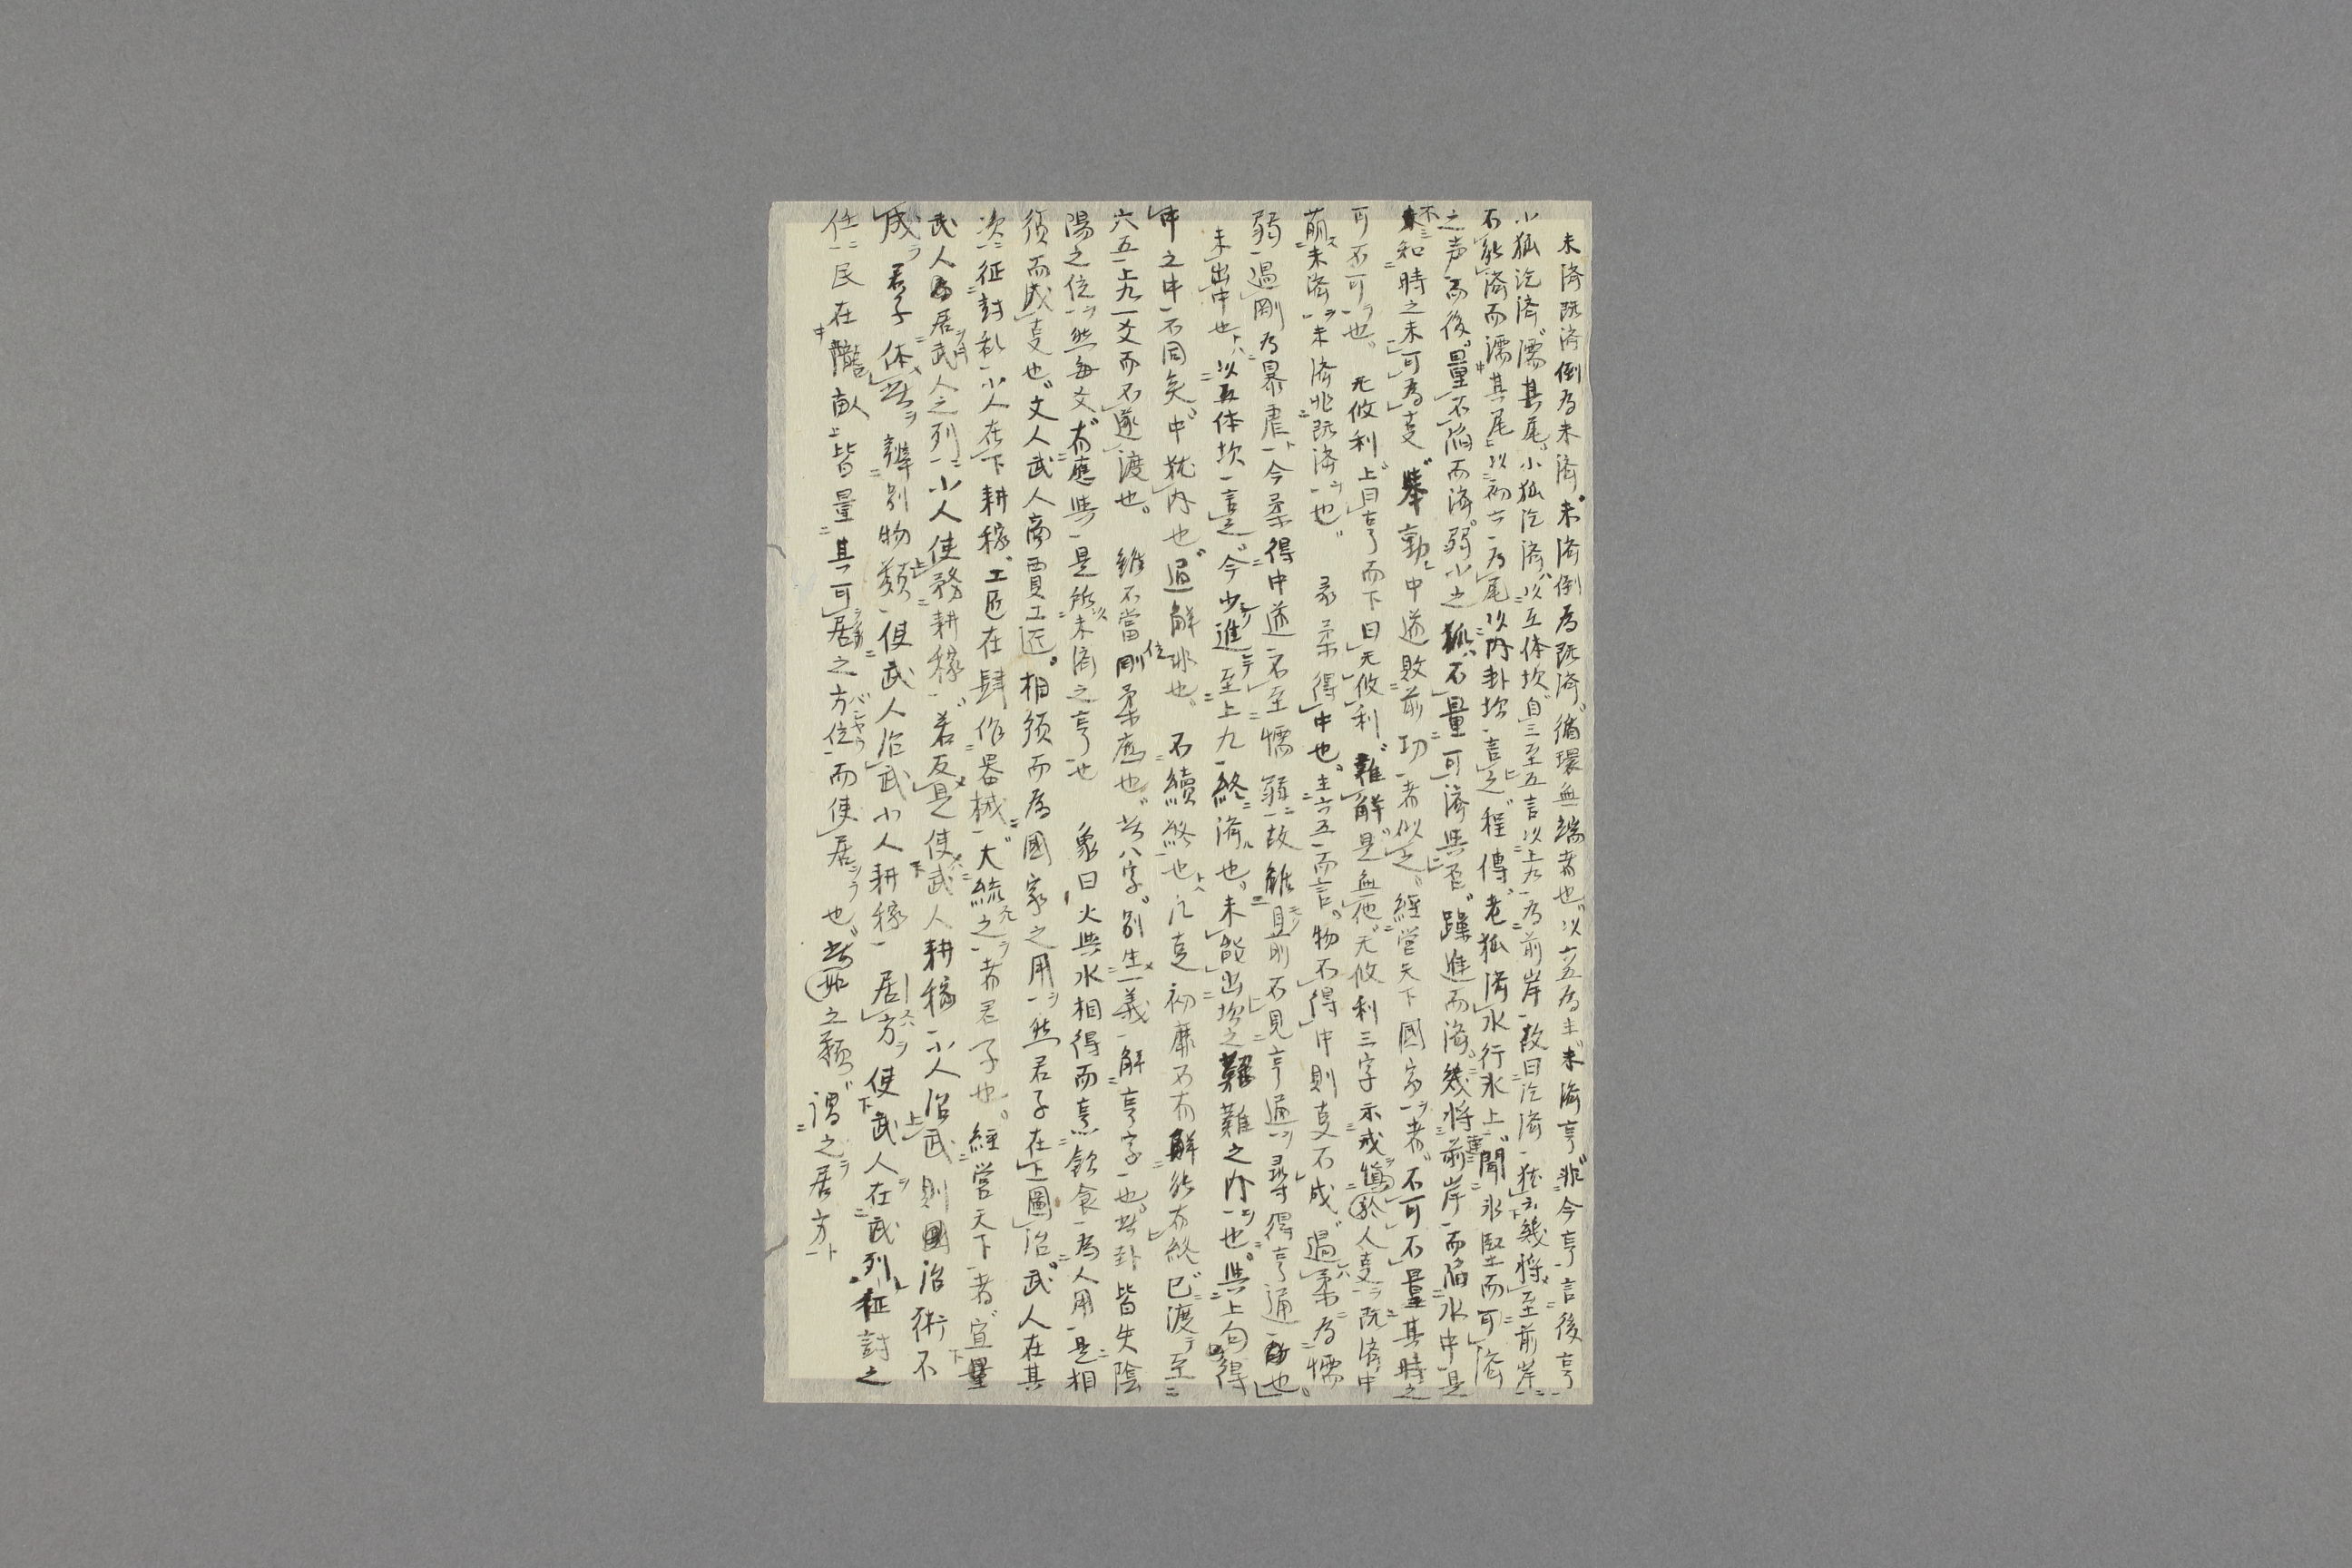 未済既済倒為未済未済倒為既済循環無端者也以六五為主未済亨非今亨言後亨
小狐汔済濡其尾小狐汔済以互体坎自三至五言以上九為前岸故曰汔済猶云幾将至前岸
不能済而濡其尾以初六為尾以内卦坎言之程傳老狐済水行氷上聞氷堅而可済
之声而後量不陥而済弱小之狐不量可済與否躁進而済幾将前岸而陥水中是
不知時之未可為事舉動中道敗前功者似之經営天下國家者不可不量其時之
可不可也 无攸利上曰亨而下曰无攸利難解是無他无攸利三字示戒於人事既済中
萠未済未済兆既済也 彖柔得中也主六五而言物不得中則事不成過柔為懦
弱過剛為暴虐今柔得中道不至懦弱故雖目前不見亨通尋得亨通故也
未出中也以互体坎言之今少進至上九終済也未能出坎之艱難之内也與上句得
中之中不同矣中猶内也過解非也 不續終也凡事初靡不有解能有終已渡至
六五上九一爻而不遂渡也 雖不當位剛柔應也此八字別生一義解亨字也此卦皆失陰
陽之位然毎爻有應與是所以未済之亨也 象曰火與水相得而烹飲食為人用是相
須而成事也文人武人商賈工匠相須而為國家之用然君子在上圖治武人在其
次征討乱小人在下耕稼工匠在肆作器械大統之者君子也經営天下者宜量
武人居武人之列小人使務耕稼若反是使武人耕稼小人治武則國治術不
成君子体此辨別物類使武人治武小人耕稼居方使武人在武列征討之
任民在隴畝皆量其可居之方位而使居也此之類謂之居方